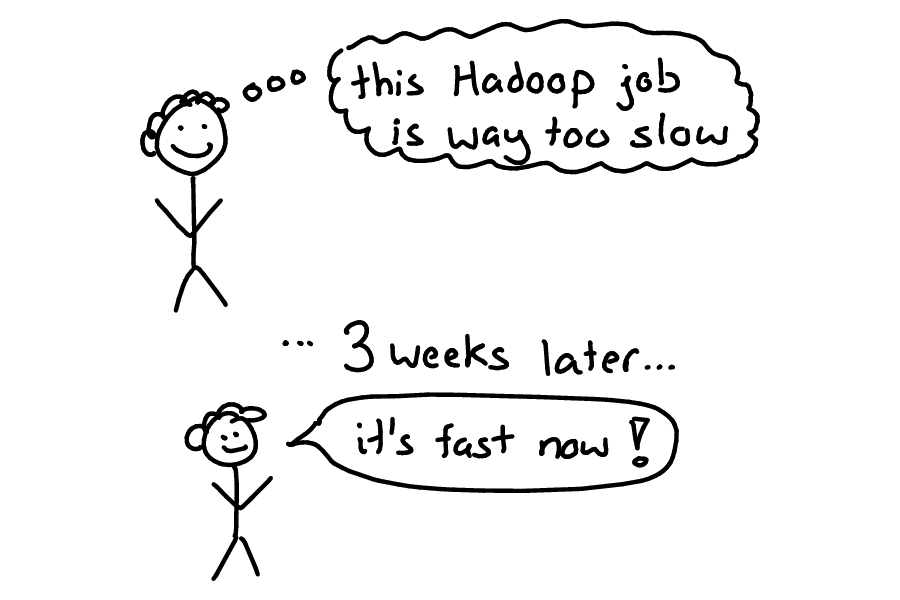 this Hadoop job
is way too slow
... 3 weeks later...
it's fast now!